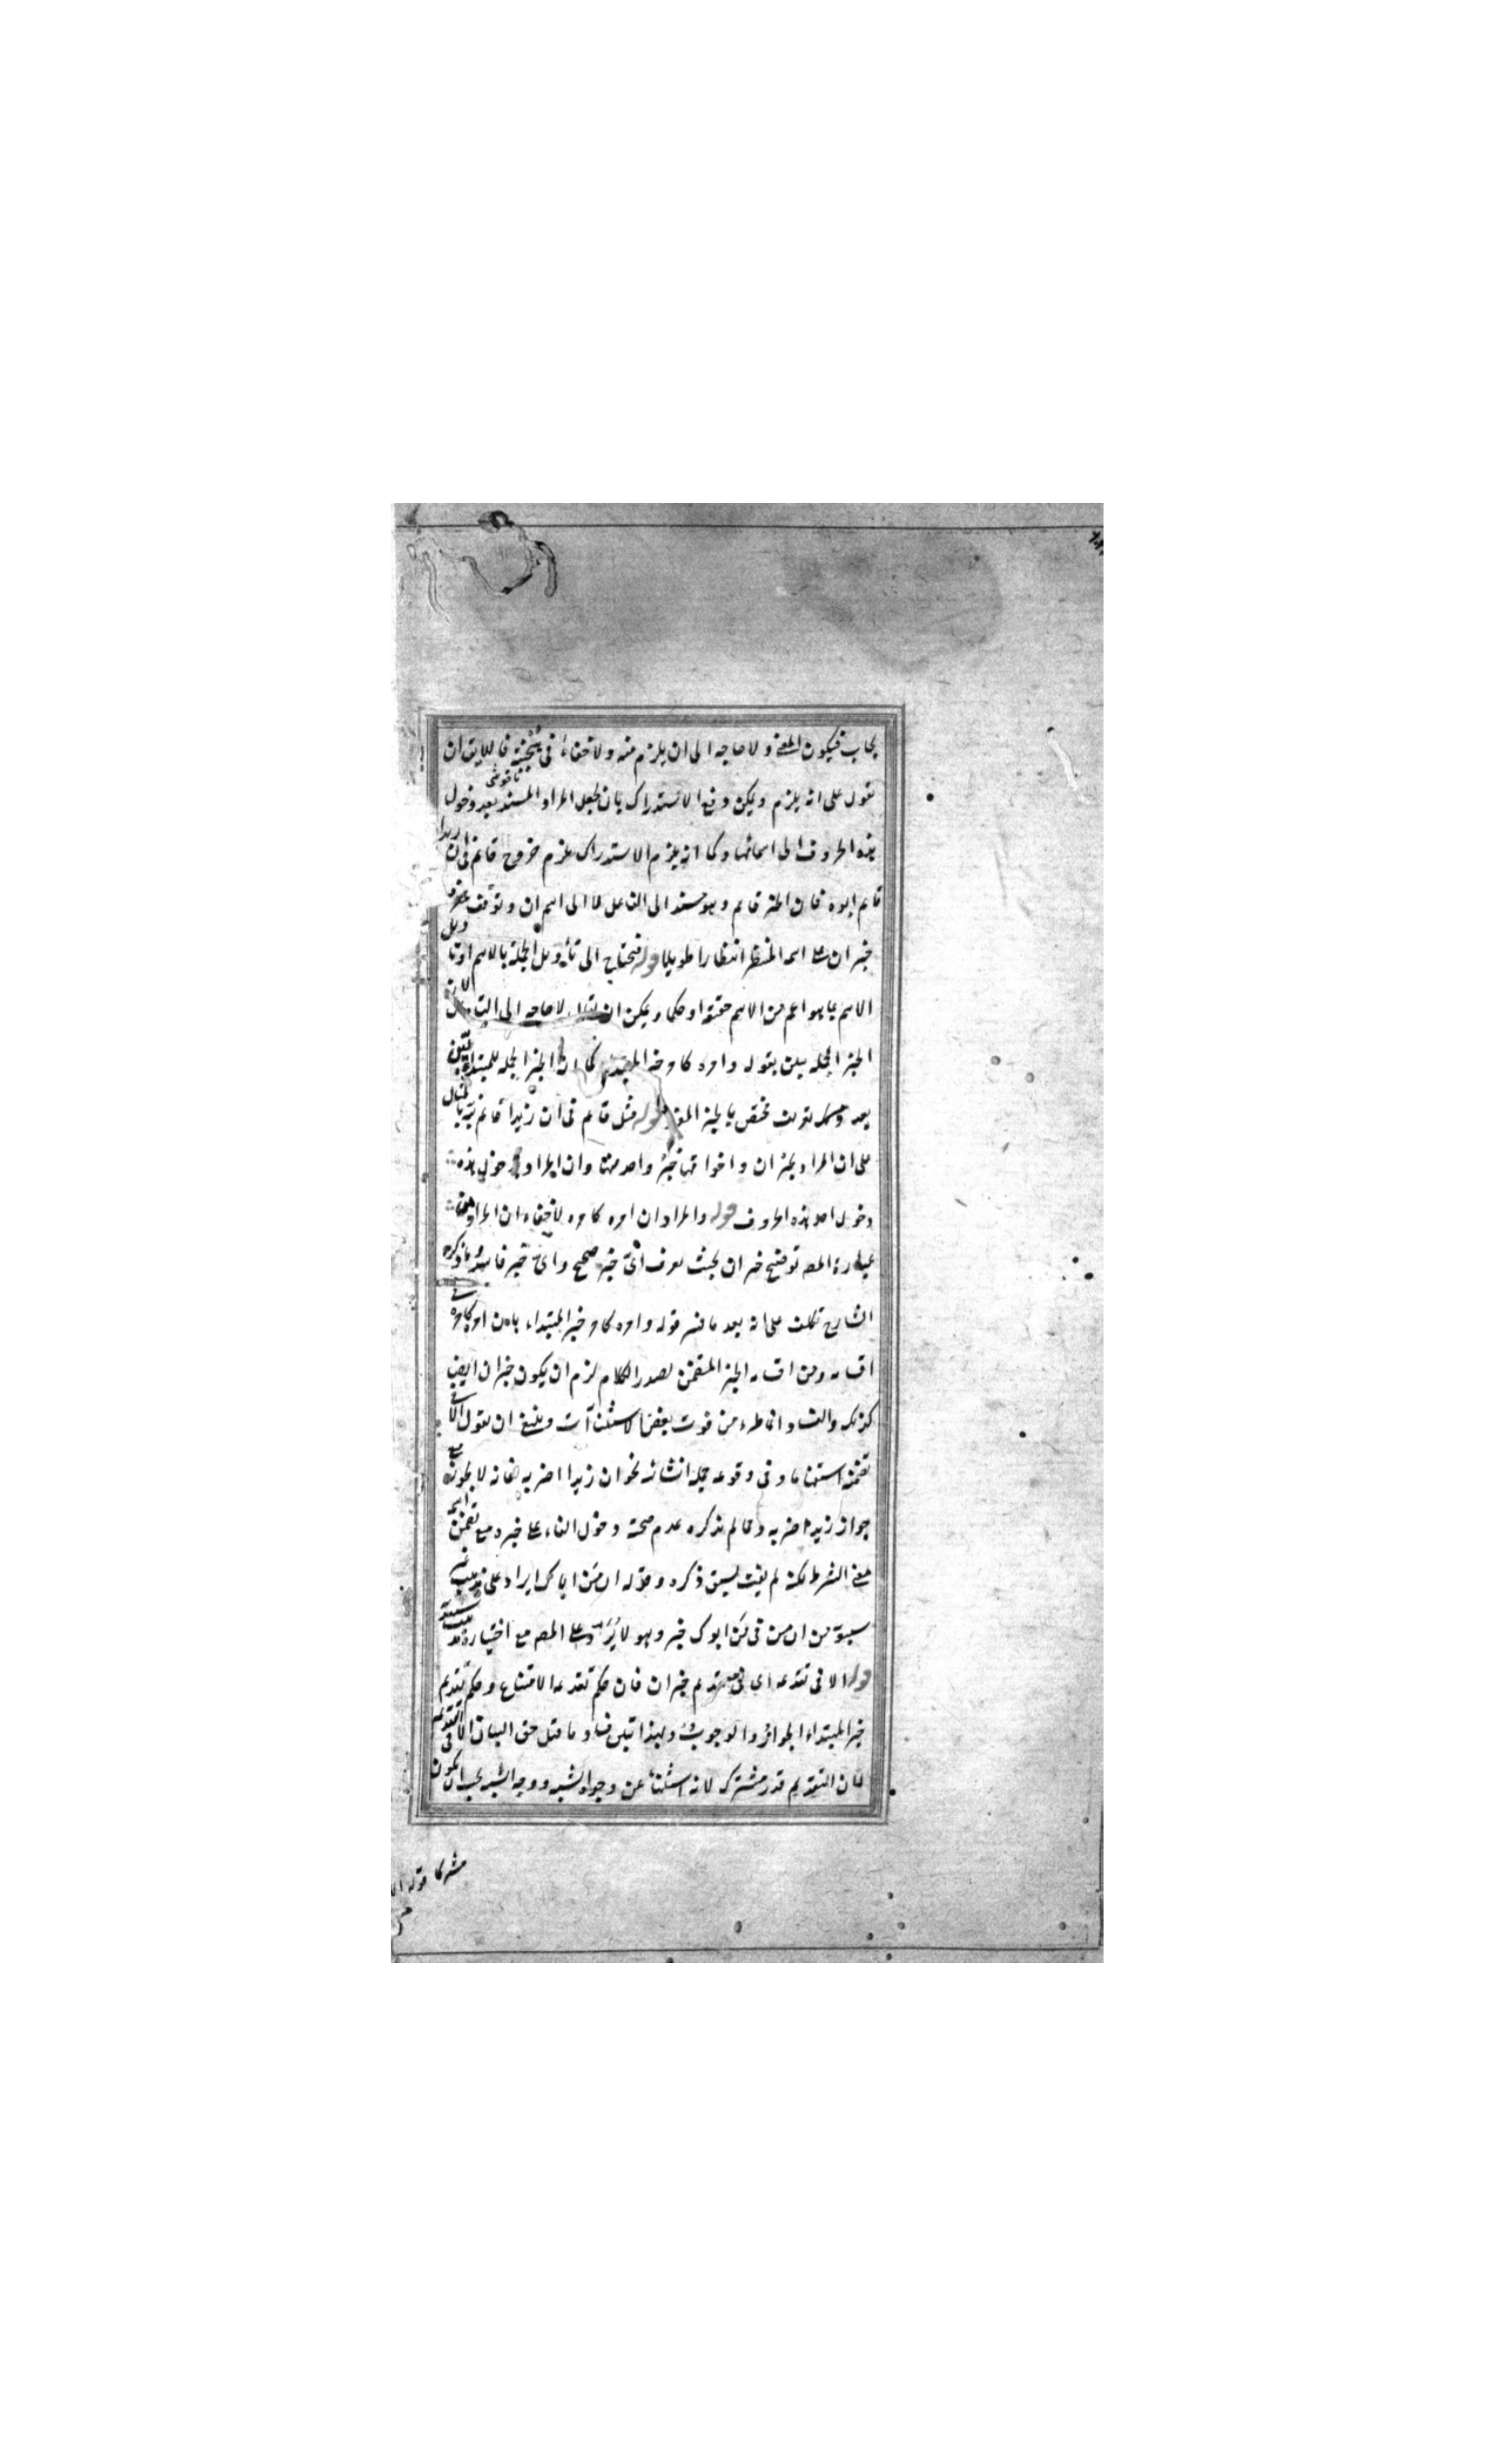 يجاب فيكون المعنى ولا حاجه الى ان يلزم منه ولا خفاء فى فاللايق ان
يقول على انه يلزم ويمكن دفع الاستدراك بان يجعل المراد المسند بعد دخول
هذه الحروف الى اسمائها وكما انه يلزم الاستدراك يلزم خروج قائم فى ان زيدا
قائم ابوه فان الخبر قائم وهو مسند الى الفاعل لا الى اسم ان وتوقف
خبر ان على اسمه المنتظر انتظارا طويلا قوله فيحتاج الى تأويل الجملة بالاسم او تاويل
الاسم بما هو اعم من الاسم حقيقة او حكما ويمكن ان يقال لا حاجه الى لان
الخبر الجمله يبين بقوله وامره كامر خبر المبتدأ كما ان الخبر الجمله للمبتدأ
بعد تعريف يختص بالخبر المفرد قوله مثل قائم فى ان زيدا قائم نبه بالمثال
على ان المراد بخبر ان واخواتها خبر واحد منها وان المراد بدخول هذه
دخول احد هذه الحروف قوله والمراد ان امره كامره لا خفاء ان المراد من
عبارة المص توضيح خبر ان بحيث يعرف اىّ خبر صحيح واىّ خبر فاسد وما ذكره
الشارح تكلف على انه بعد ما فسر قوله وامره كامر خبر المبتداء بان امره كامره فى
اقسامه ومن اقسامه الخبر المتضمن لصدر الكلام لزم ان يكون خبر ان ايضا
كذلك والفساد انما طرء من فوت بعض الاستثناآت وينبغى ان يقول الا فى
تضمنه استفهاما وفى وقوعه جملة انشائيه نحو ان زيدا اضربه فانه لا يجوز مع
جواز زيد اضربه ومما لم يذكره عدم صحة دخول الفاء على خبره مع تضمن اسمه
معنى الشرط لكنه لم يفت لسبق ذكره وقوله ان من اباك ايراد على مذهب
سيبويه من ان من فى من ابوك خبر وهو لا يرد على المص مع اختياره مذهب سيبويه
قوله الا فى تقديمه اى فى حكم تقديم خبر ان فان حكم تقديمه الامتناع وحكم تقديم
خبر المبتداء الجواز والوجوب وبهذا تبين فساد ما قيل حق البيان الا فى التقديم
فان التقديم قدر مشترك لانه استثناء عن وجوه الشبه ووجه الشبه يجب ان يكون
مشتركا قوله